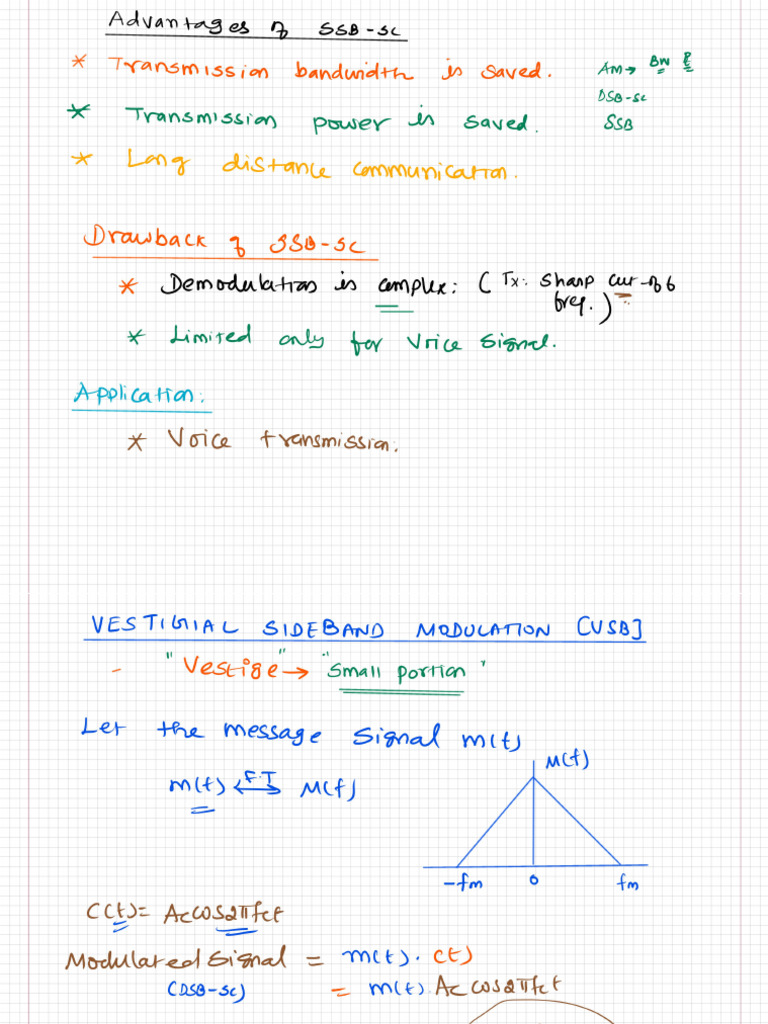 Advantages of SSB-SC
* Transmission bandwidth is saved. AM → BW P
* Transmission power is saved. DSB-SC
SSB
* Long distance communication.
Drawback of SSB-SC
* Demodulation is complex: (Tx: Sharp cut-off
freq.)
* Limited only for Voice signal.
Application:
* Voice transmission:
VESTIGIAL SIDEBAND MODULATION [VSB]
- "Vestige" → "Small portion"
Let the message signal m(t)
M(f)
m(t) F.T ↔ M(f)
-fm 0 fm
C(t) = Ac cos2πfct
Modulated Signal = m(t). c(t)
(DSB-SC) = m(t). Ac cos2πfct